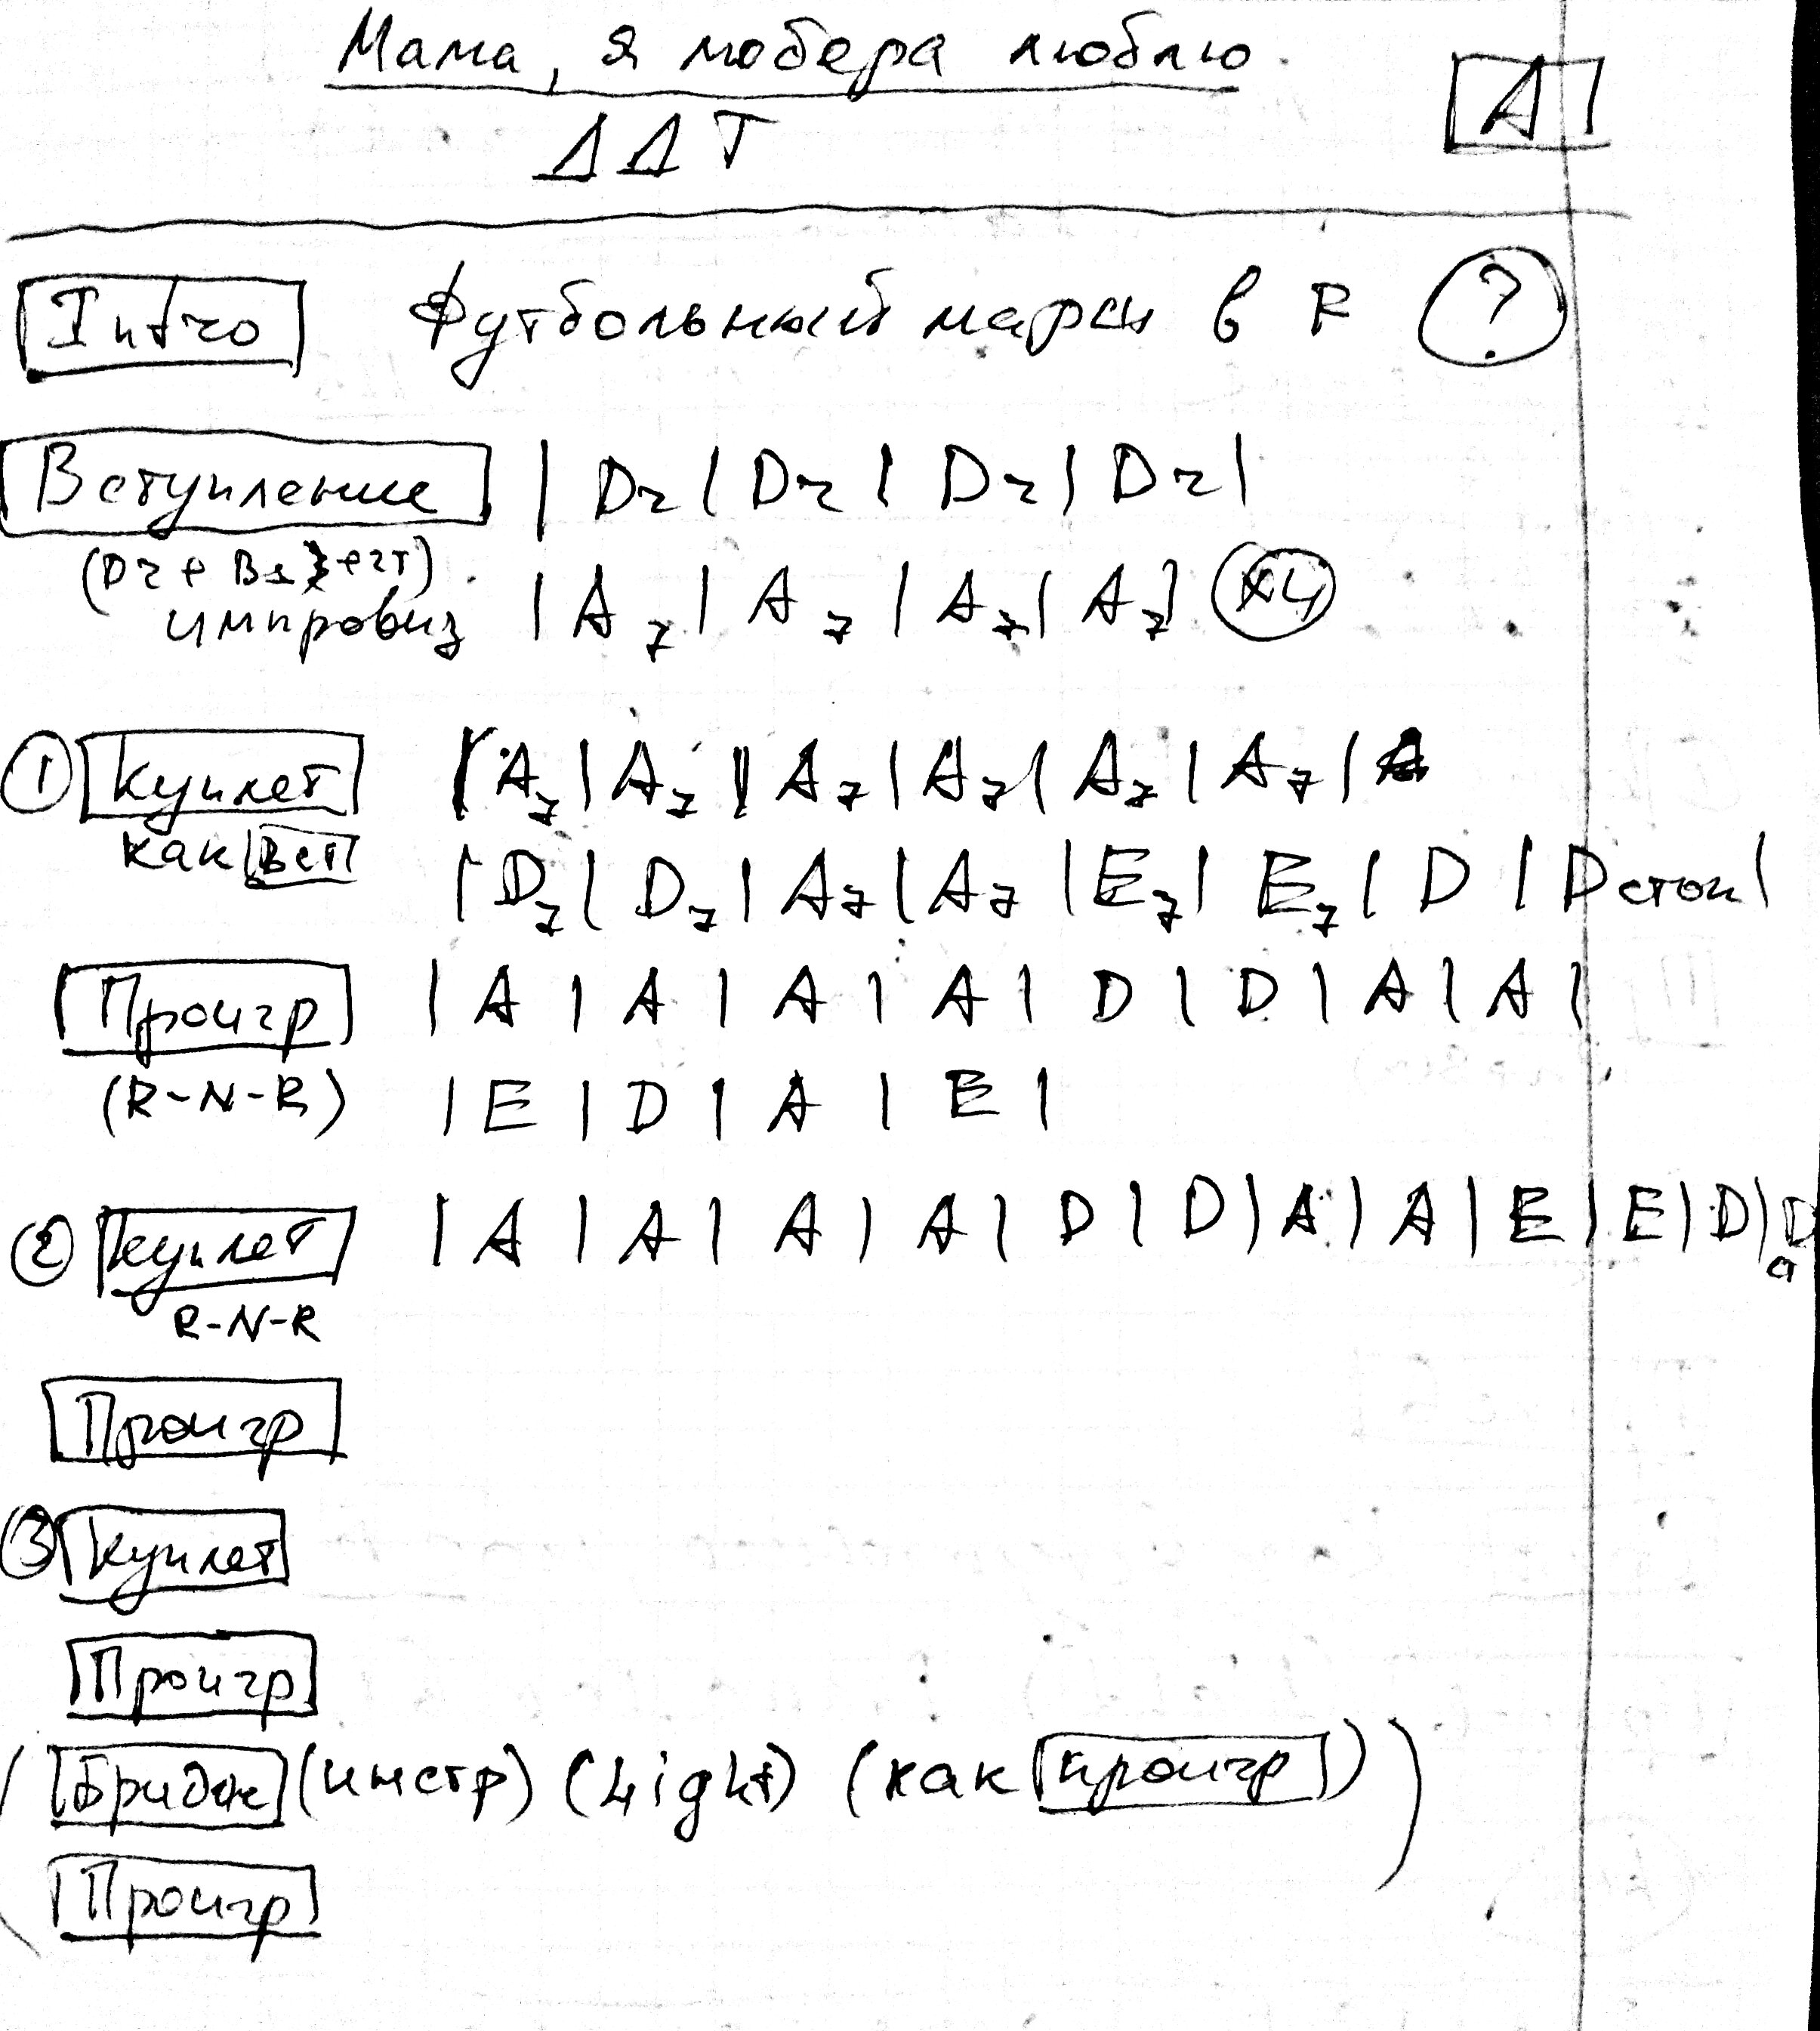 Мама, я мобера люблю.
ДДТ
A
Intro Футбольный марш в F ?
Вступление | Dr | Dr | Dr | Dr |
(Dr + Bs + гт)
импровиз | A7 | A7 | A7 | A7 | x4
1 Куплет | A7 | A7 | A7 | A7 | A7 | A7 |
как Вст | D7 | D7 | A7 | A7 | E7 | E7 | D | D стоп |
Проигр | A | A | A | A | D | D | A | A |
(R-N-R) | E | D | A | E |
2 Куплет | A | A | A | A | D | D | A | A | E | E | D | D
ст
R-N-R
Проигр
3 Куплет
Проигр
( Бридж (инстр) (Light) (как проигр) )
Проигр